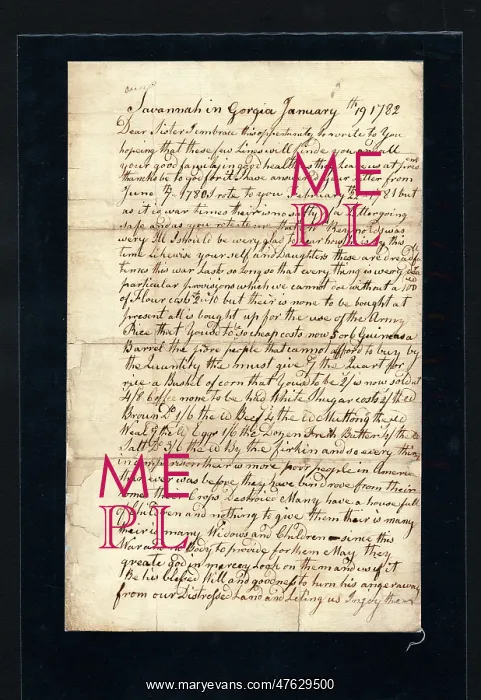 Savannah in Gorgia January th 19 1782
Dear Sister I embrace this oppertunity to write to You
hopeing that these few Lines will finde you and all
your good family in good health as they Leave us at
thanks be to god for it I have answered your Letter from
June 1780 I rote to you February 1781 but
as it is war times their is no safty of a Letter going
safe and as you rote me that
wery Ill I should be wery glad to hear how by this
time Likewise your self and Daughters these are dreadful
times this war Lasts so Long so that every thing is wery
particular provisions which we cannot doe without a 100
of Flour cost but their is none to be bought at
present all is bought up for the use of the Army
Rice that You'd to so cheap costs now 5 or 6 Guineas a
Barrel the poore people that cannot afford to buy by
the Quantity the must give the Quart for
rice a Bushel of corn that you'd to be 2/ is now sold at
4/8 Coffee none to be had White Shugar costs 2/ the
Brown 1/6 the Beef the Mutton the
Weal the Eggs 1/6 the Dozen Fresh Butter the
Salt 3/6 the by the firkin and so every thing
in proporsion their is more poor people in America
ever was before they have bin drove from their
home their Crops Destroied Many have a house full
of Children and nothing to give them their is many
their is many Widows and Children since this
War and no Body to provide for them May the
greate god in mercey Look on them and us if it
Be his blessed Will and goodness to turn his anger away
from our Distressed Land and Leting us Ingoy them
ME
PL
ME
PL
www.maryevans.com/47629500